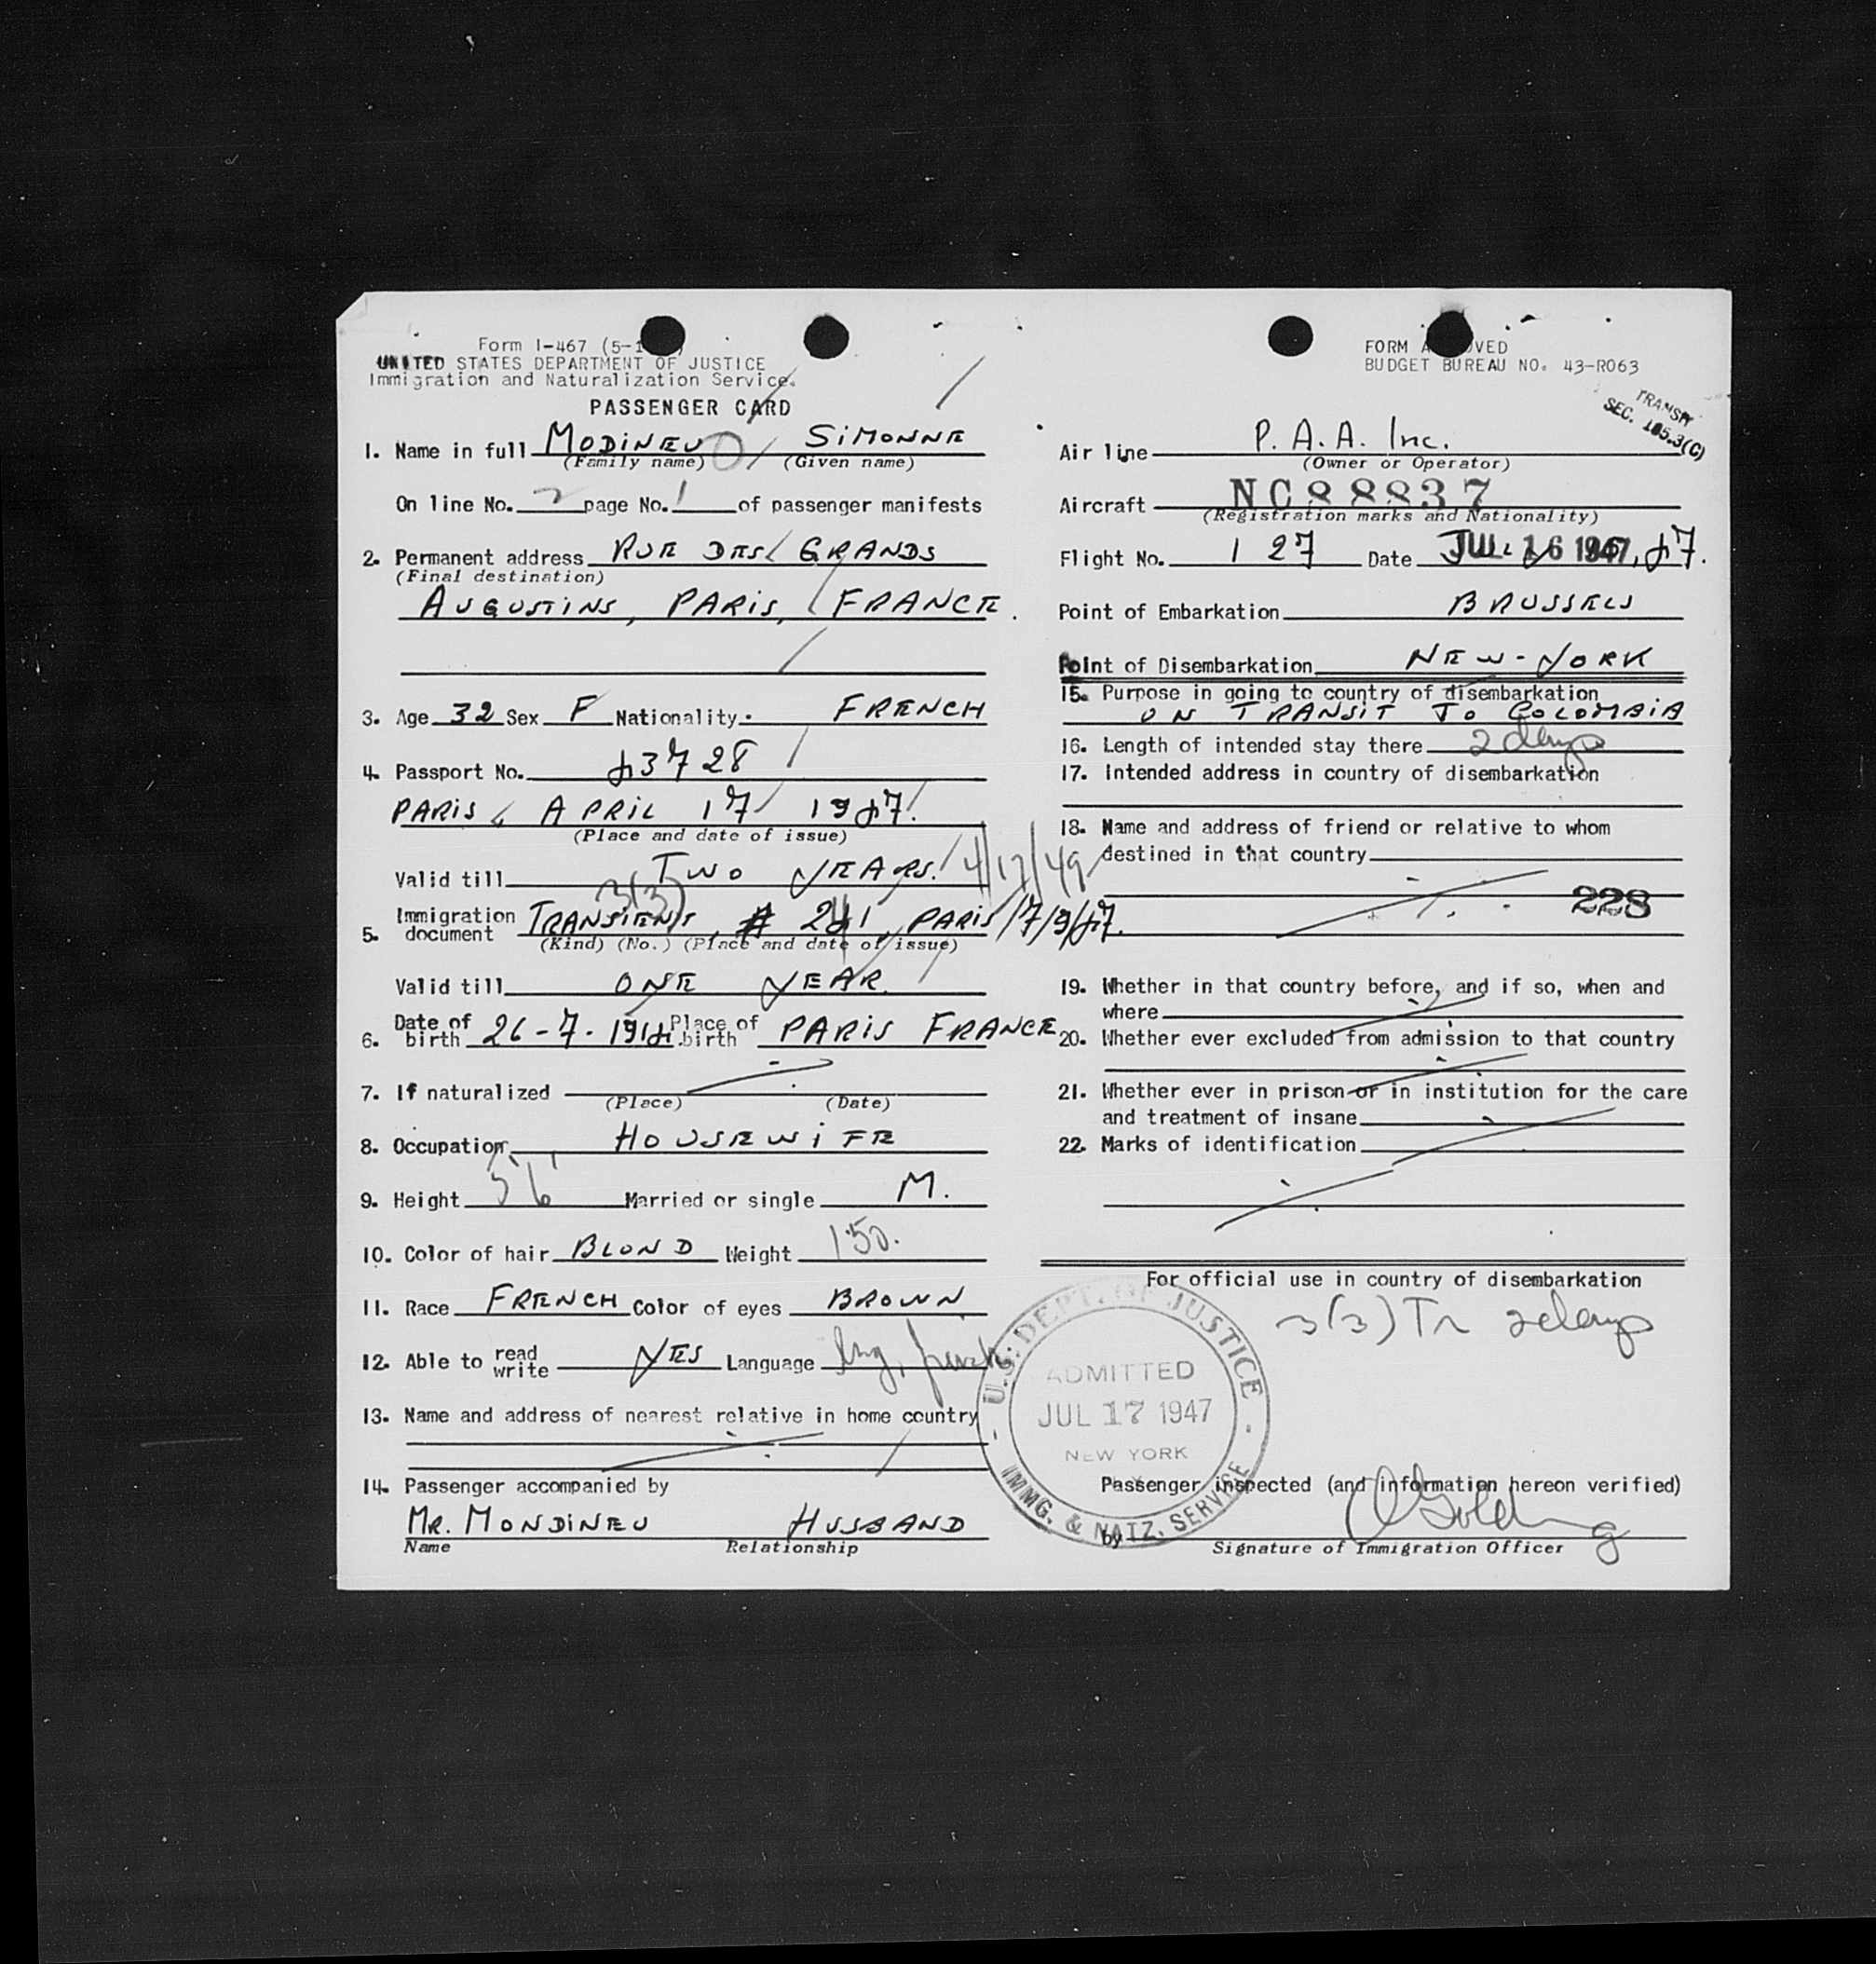 Form I-467 (5-1
UNITED STATES DEPARTMENT OF JUSTICE
Immigration and Naturalization Service.
PASSENGER CARD
1. Name in full MODINEU SIMONNE
(Family name) (Given name)
On line No. 2 page No. 1 of passenger manifests
2. Permanent address RUE DES GRANDS
(Final destination)
AUGUSTINS, PARIS, FRANCE.
3. Age 32 Sex F Nationality. FRENCH
4. Passport No. 43728
PARIS, APRIL 17 1947.
(Place and date of issue)
Valid till TWO YEARS. 4/17/49
3(3)
5. Immigration document TRANSIENTS, # 241, PARIS 17/9/47.
(Kind) (No.) (Place and date of issue)
Valid till ONE YEAR.
6. Date of birth 26-7-1914. Place of birth PARIS FRANCE
7. If naturalized
(Place) (Date)
8. Occupation HOUSEWIFE
9. Height 5'6' Married or single M.
10. Color of hair BLOND Weight 150.
11. Race FRENCH Color of eyes BROWN
12. Able to read write YES Language Eng, french
13. Name and address of nearest relative in home country
14. Passenger accompanied by
MR. MONDINEU HUSBAND
Name Relationship
FORM A VED
BUDGET BUREAU NO. 43-R063
TRANSIT
SEC. 105.3(C)
Air line P.A.A. Inc.
(Owner or Operator)
Aircraft NC88837
(Registration marks and Nationality)
Flight No. 127 Date JUL 16 1947, 47.
Point of Embarkation BRUSSELS
Point of Disembarkation NEW-YORK
15. Purpose in going to country of disembarkation
ON TRANSIT TO COLOMBIA
16. Length of intended stay there 2 days
17. Intended address in country of disembarkation
18. Name and address of friend or relative to whom
destined in that country
228
19. Whether in that country before, and if so, when and
where
20. Whether ever excluded from admission to that country
21. Whether ever in prison or in institution for the care
and treatment of insane
22. Marks of identification
For official use in country of disembarkation
3(3) Tr 2 days
U.S. DEPT. OF JUSTICE
ADMITTED
JUL 17 1947
NEW YORK
IMMG. & NATZ. SERVICE
Passenger inspected (and information hereon verified)
by Golding
Signature of Immigration Officer